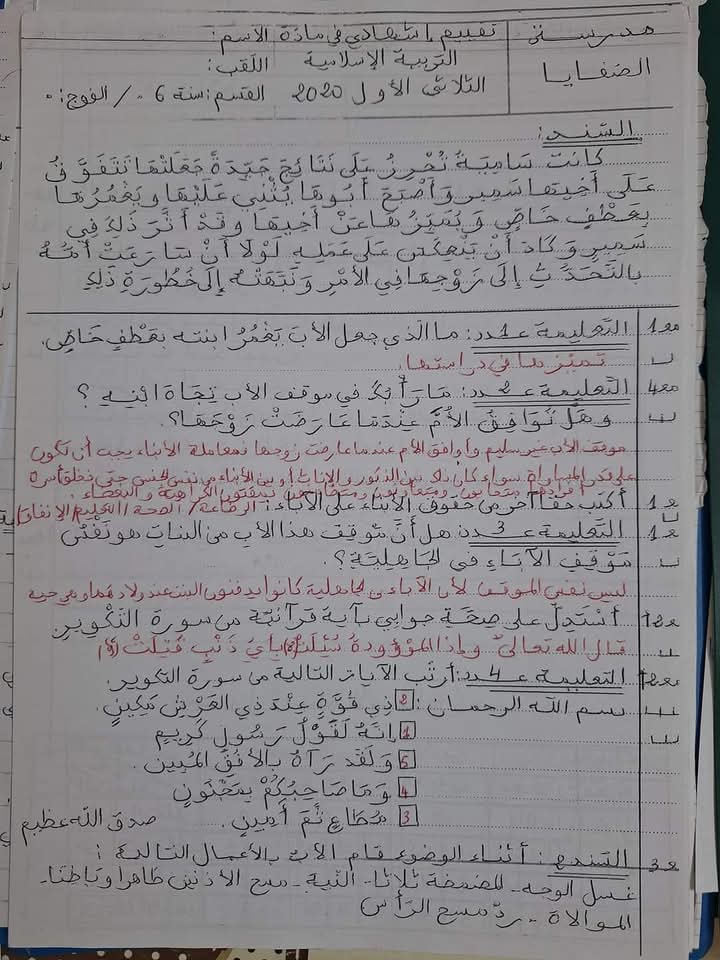 مدرسة
الصفايا
تقييم إشهادي في مادة
التربية الإسلامية
الثلاثي الأول 2020
الاسم:
اللقب:
القسم: سنة 6 / الفوج:
السّند:
كانت سامية تُحرز على نتائج جيّدة جعلتها تتفوّق
على أخيها سمير وأصبح أبوها يُثني عليها ويغمرها
بعطف خاصّ ويميّزها عن أخيها وقد أثّر ذلك في
سمير وكاد أن ينعكس على عمله لولا أن سارعت أمّه
بالتحدّث إلى زوجها في الأمر ونبّهته إلى خطورة ذلك
التعليمة عـ1ـدد: ما الذي جعل الأب يغمر ابنته بعطف خاصّ.
تميزها في دراستها
التعليمة عـ2ـدد: ما رأيك في موقف الأب تجاه ابنيه ؟
وهل توافق الأمّ عندما عارضت زوجها؟.
موقف الأب غير سليم وأوافق الأم عندما عارضت زوجها فمعاملة الأبناء يجب أن تكون
على قدر المساواة سواء كان ذلك بين الذكور والإناث أو بين الأبناء من نفس الجنس حتى نخلق أسرة
الكراهية والبغضاء.
أكتب حقّا آخر من حقوق الأبناء على الآباء: الرضاعة/ الصحة/ التعليم/ الإنفاق
التعليمة عـ3ـدد: هل أنّ موقف هذا الأب من البنات هو نفس
موقف الآباء في الجاهلية؟.
ليس نفس الموقف لأن الآباء في الجاهلية كانوا يدفنون البنت عند ولادتها وهي حية
أستدلّ على صحّة جوابي بآية قرآنيّة من سورة التّكوير.
قال الله تعالى وإذا الموؤودة سُئلت (8) بأيّ ذنب قُتلت (9)
التعليمة عـ4ـدد: أرتّب الآيات التالية من سورة التكوير.
بسم الله الرحمان: 2 ذي قوّة عند ذي العرش مكين.
1 إنّه لقول رسول كريم
5 ولقد رآه بالأفق المبين.
4 وما صاحبكم بمجنون
3 مطاع ثَمّ أمين. صدق الله عظيم
السند: أثناء الوضوء قام الأب بالأعمال التالية:
غسل الوجه - المضمضة ثلاثا - النية - مسح الأذنين ظاهرا وباطنا -
الموالاة - ردّ مسح الرأس